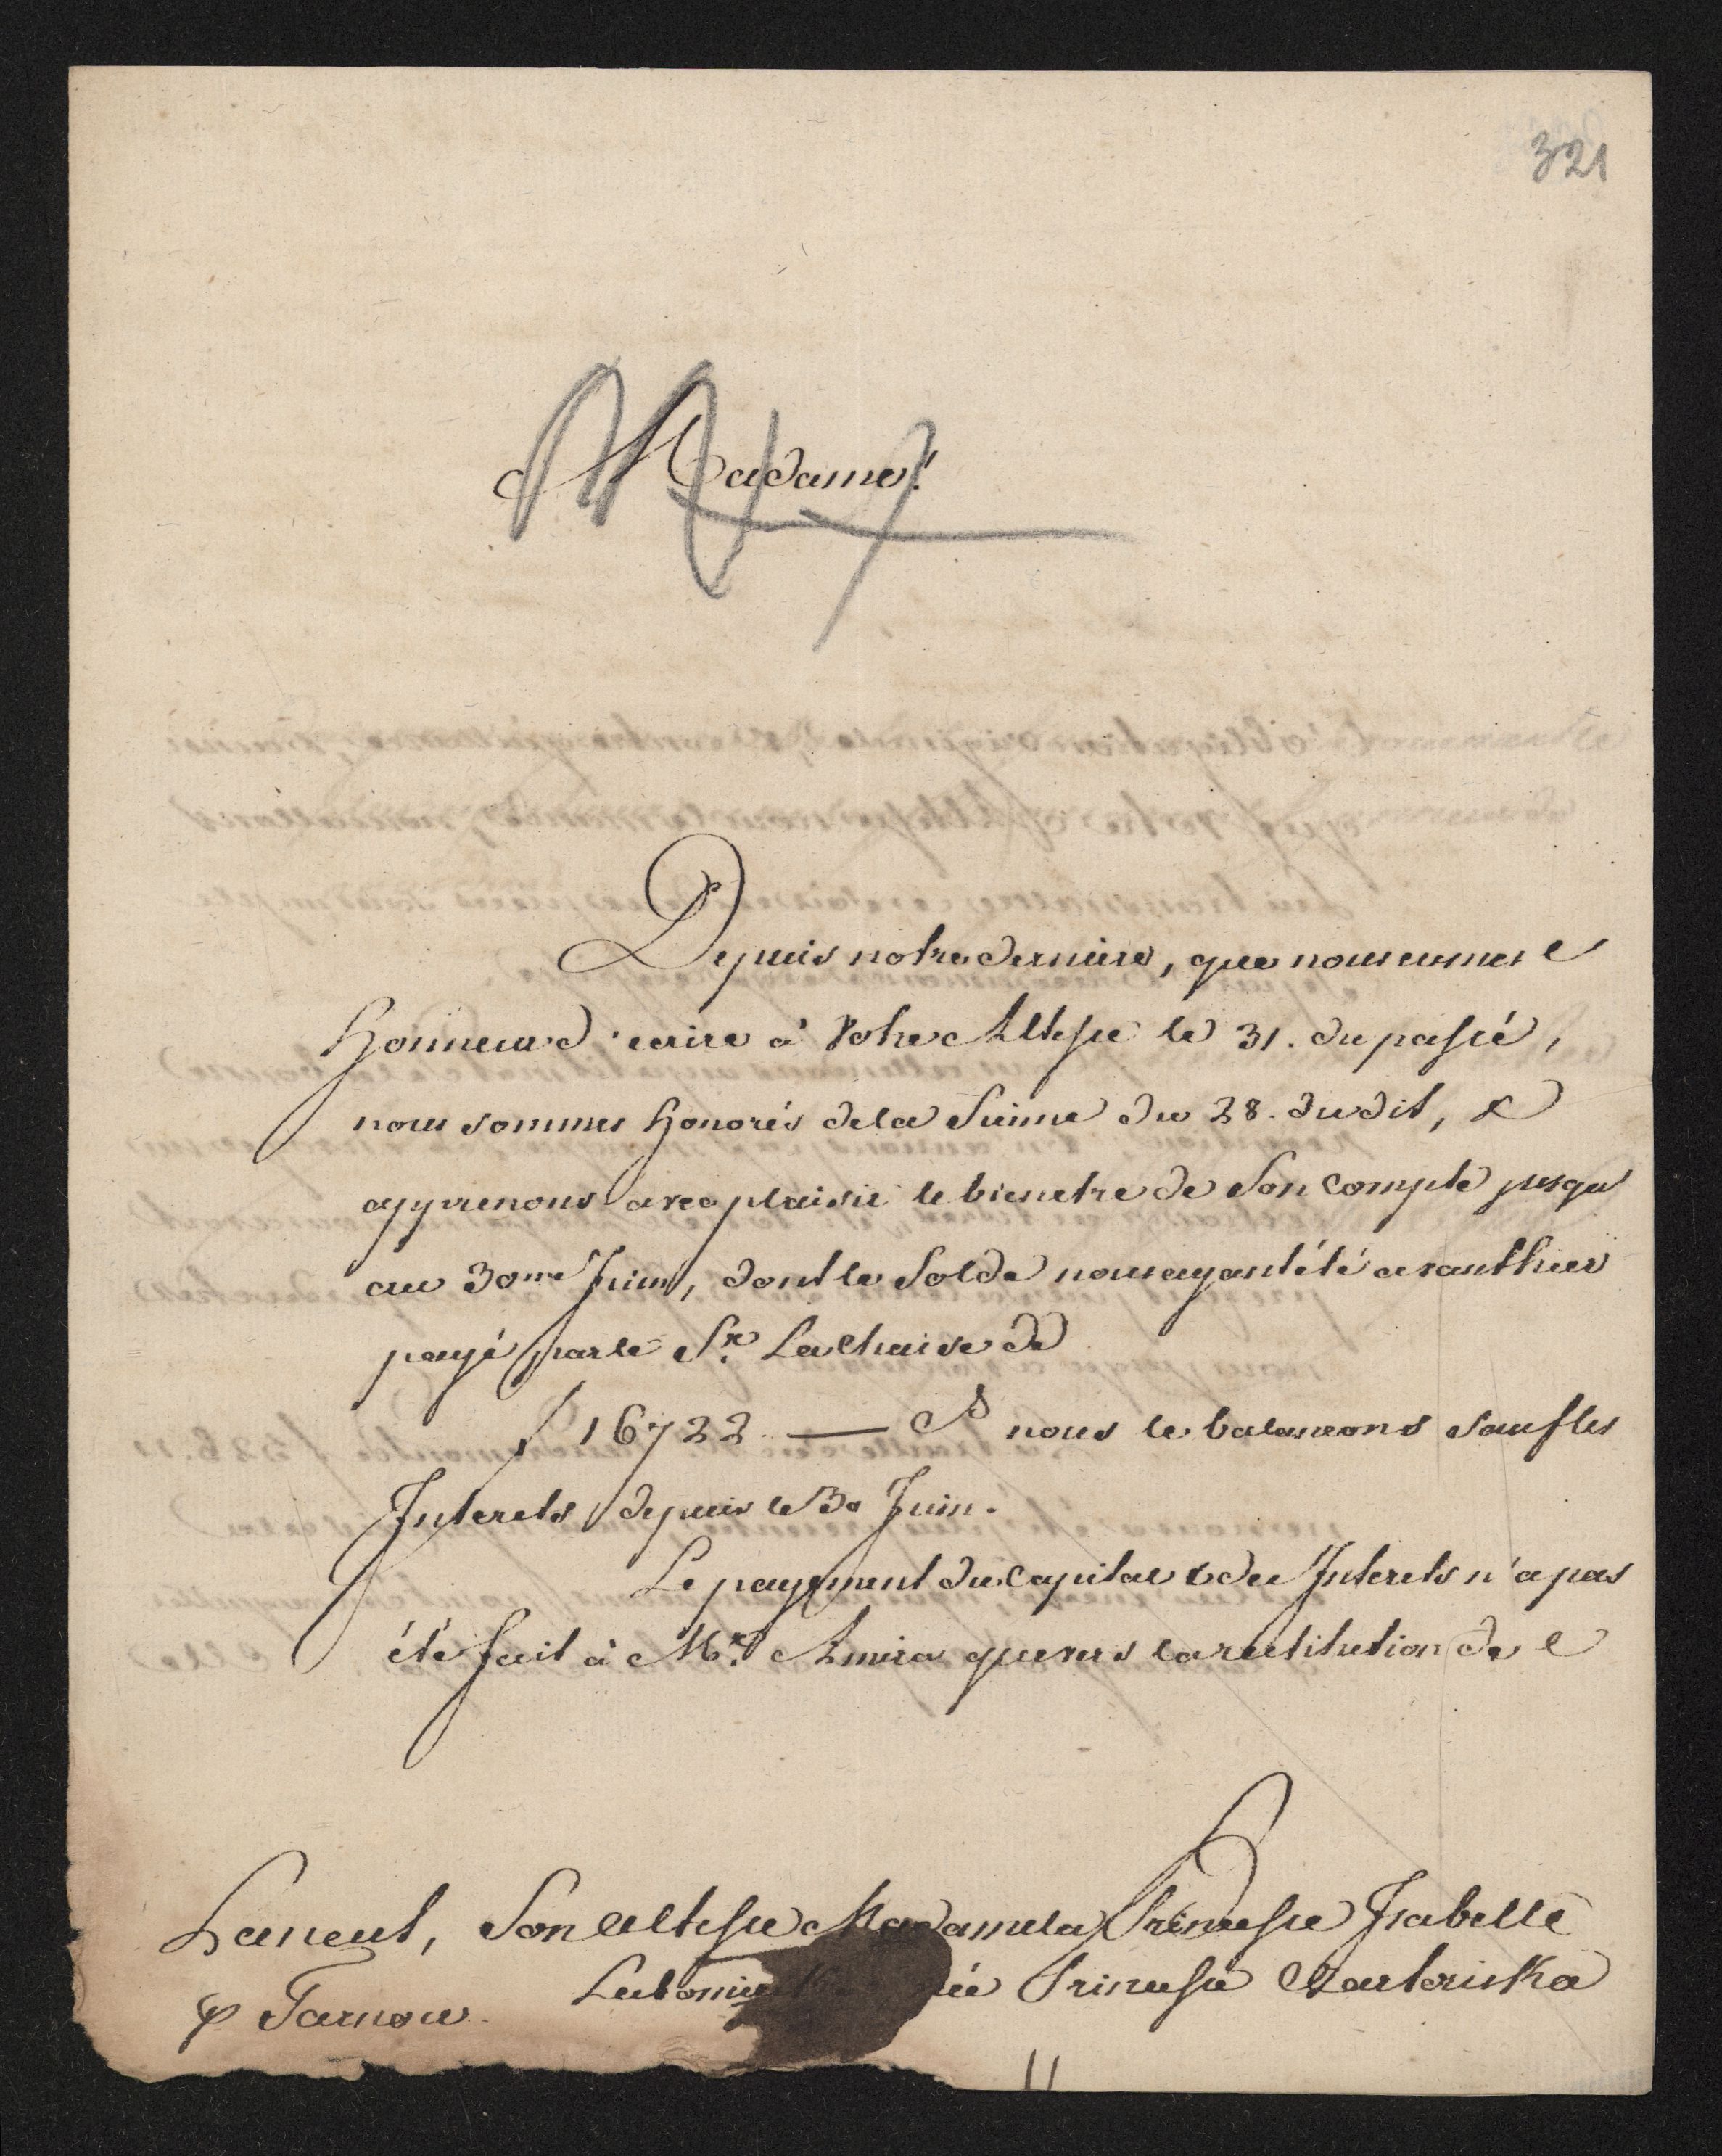 321
Madame!
Depuis notre derniere, que nous eumes l
Honneur d'ecrire à Votre Altesse le 31. du passé,
nous sommes honorés de la Sienne du 28. dudit, &
apprenons avec plaisir le bienetre de Son Compte jusqu
au 30me Juin, dont le Solde nous ayant été avanthier
payé par le Sr. Lachaise de
f 16722 — nous le balancons sauf les
Interets depuis le 30 Juin.
Le payement du Capital & des Interets n'a pas
été fait à Mr. Amira que vers la restitution de l
Lancut, Son Altesse Madame la Princesse Isabelle
p Tarnow. Lubomirska née Princesse Czartoriska